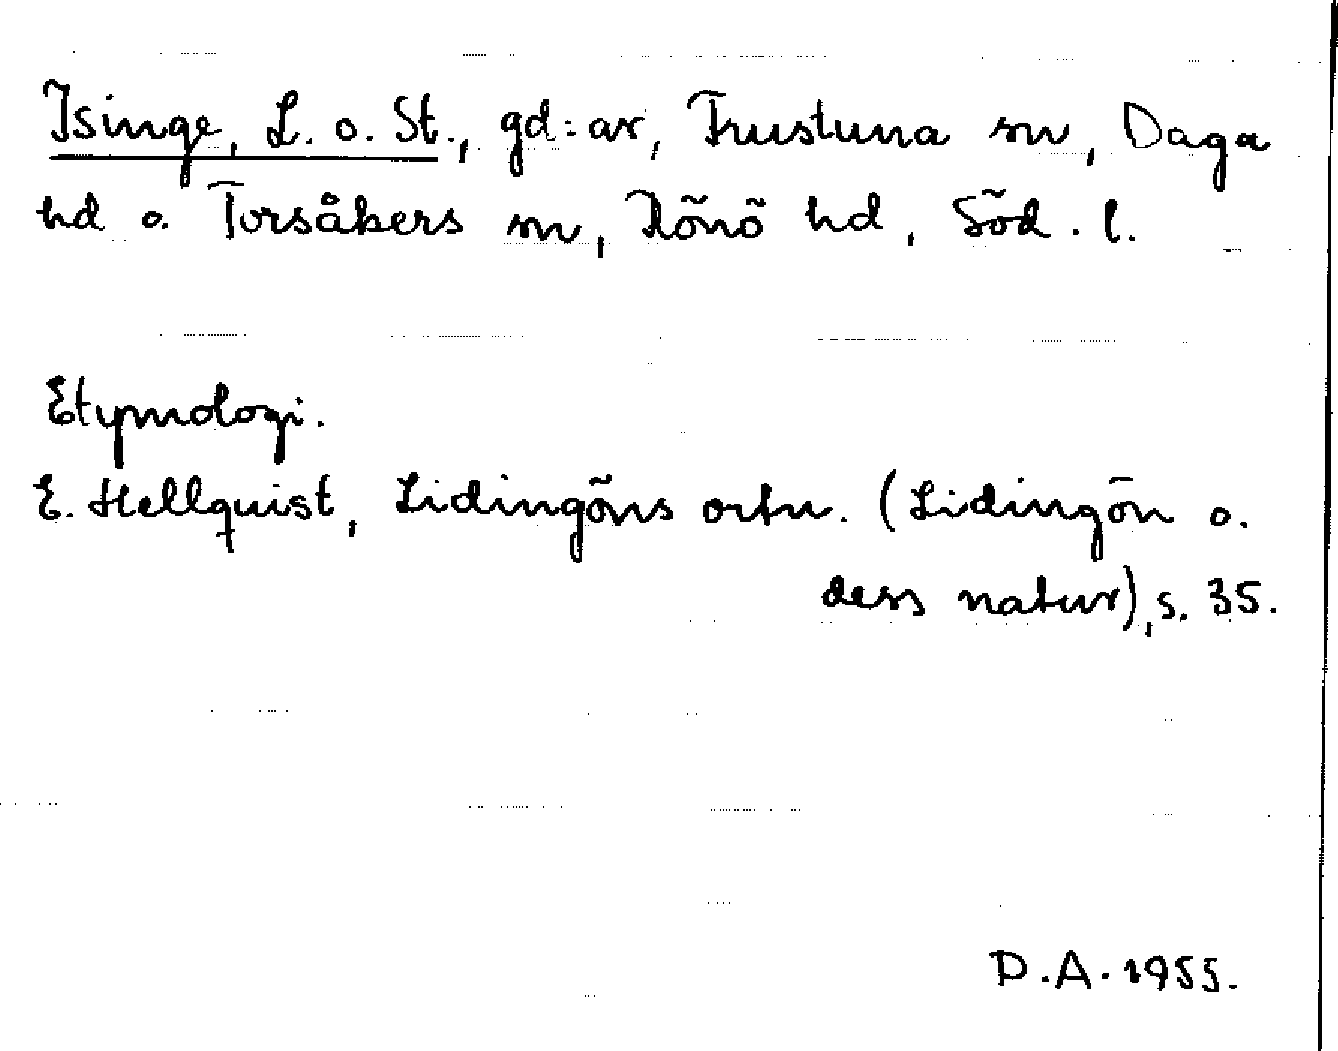 Isinge, L. o. St., gd=ar, Frustuna sn, Daga
hd o. Torsåkers sn, Rönö hd, Söd. l.
Etymologi.
E. Hellquist, Lidingöns ortn. (Lidingön o.
dess natur), s. 35.
D.A. 1955.